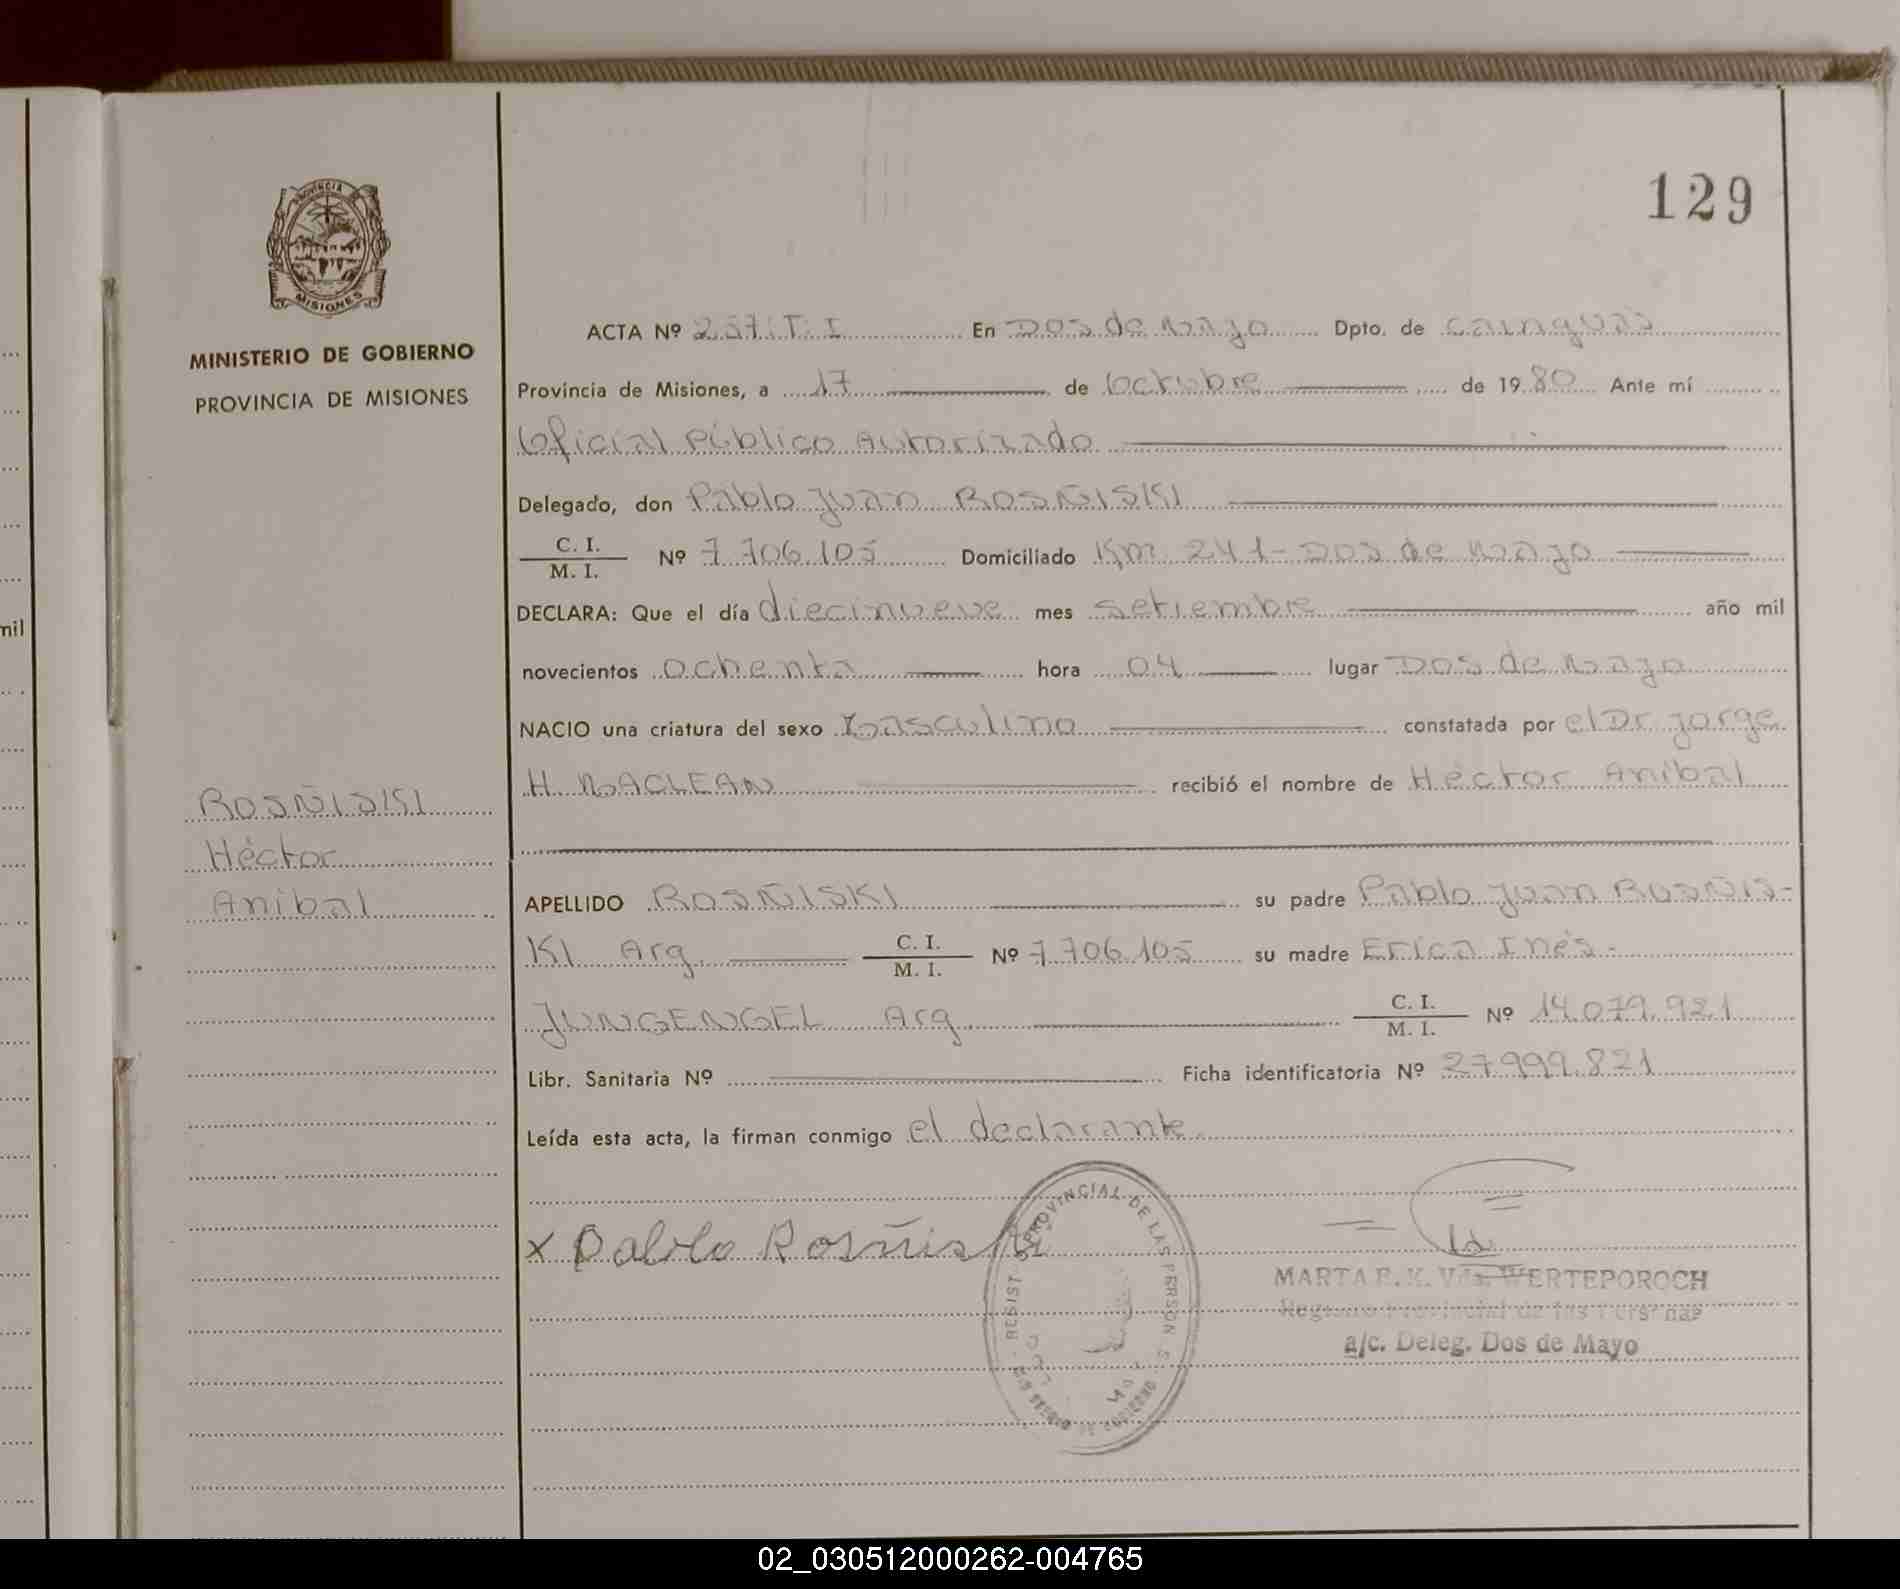 129
PROVINCIA
MISIONES
MINISTERIO DE GOBIERNO
PROVINCIA DE MISIONES
ACTA Nº 257. T. I En Dos de Mayo Dpto. de Cainguás
Provincia de Misiones, a 17 de Octubre de 1980 Ante mí
Oficial Público Autorizado
Delegado, don Pablo Juan ROSÑISKI
C. I.
M. I. Nº 7.706.105 Domiciliado Km. 241- Dos de Mayo
DECLARA: Que el día diecinueve mes setiembre año mil
novecientos ochenta hora 04 lugar Dos de Mayo
NACIO una criatura del sexo Masculino constatada por el Dr. Jorge
H. MACLEAN recibió el nombre de Héctor Anibal
ROSÑISKI
Héctor
Anibal
APELLIDO ROSÑISKI su padre Pablo Juan ROSÑIS-
KI Arg. C. I.
M. I. Nº 7.706.105 su madre Erica Inés.
JUNGENGEL Arg. C. I.
M. I. Nº 14.079.921
Libr. Sanitaria Nº Ficha identificatoria Nº 27.999.821
Leída esta acta, la firman conmigo el declarante.
x Pablo Rosñiski
PROVINCIAL DE LAS PERSON S
MARTA E. K. Vda. WERTEPOROCH
Registro Provincial de las Personas
a/c. Deleg. Dos de Mayo
mil
02_030512000262-004765